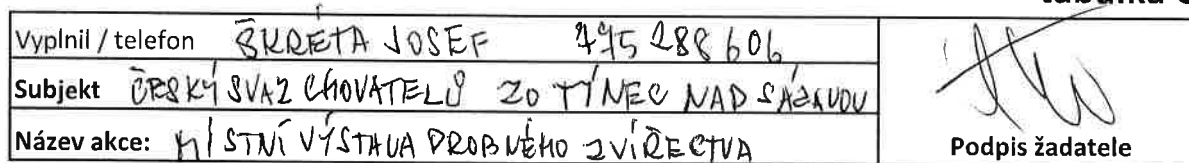 Vyplnil / telefon ŠKRÉTA JOSEF 775 288 606
Subjekt ČESKÝ SVAZ CHOVATELŮ ZO TÝNEC NAD SÁZAVOU
Název akce: MÍSTNÍ VÝSTAVA DROBNÉHO ZVÍŘECTVA
Podpis žadatele